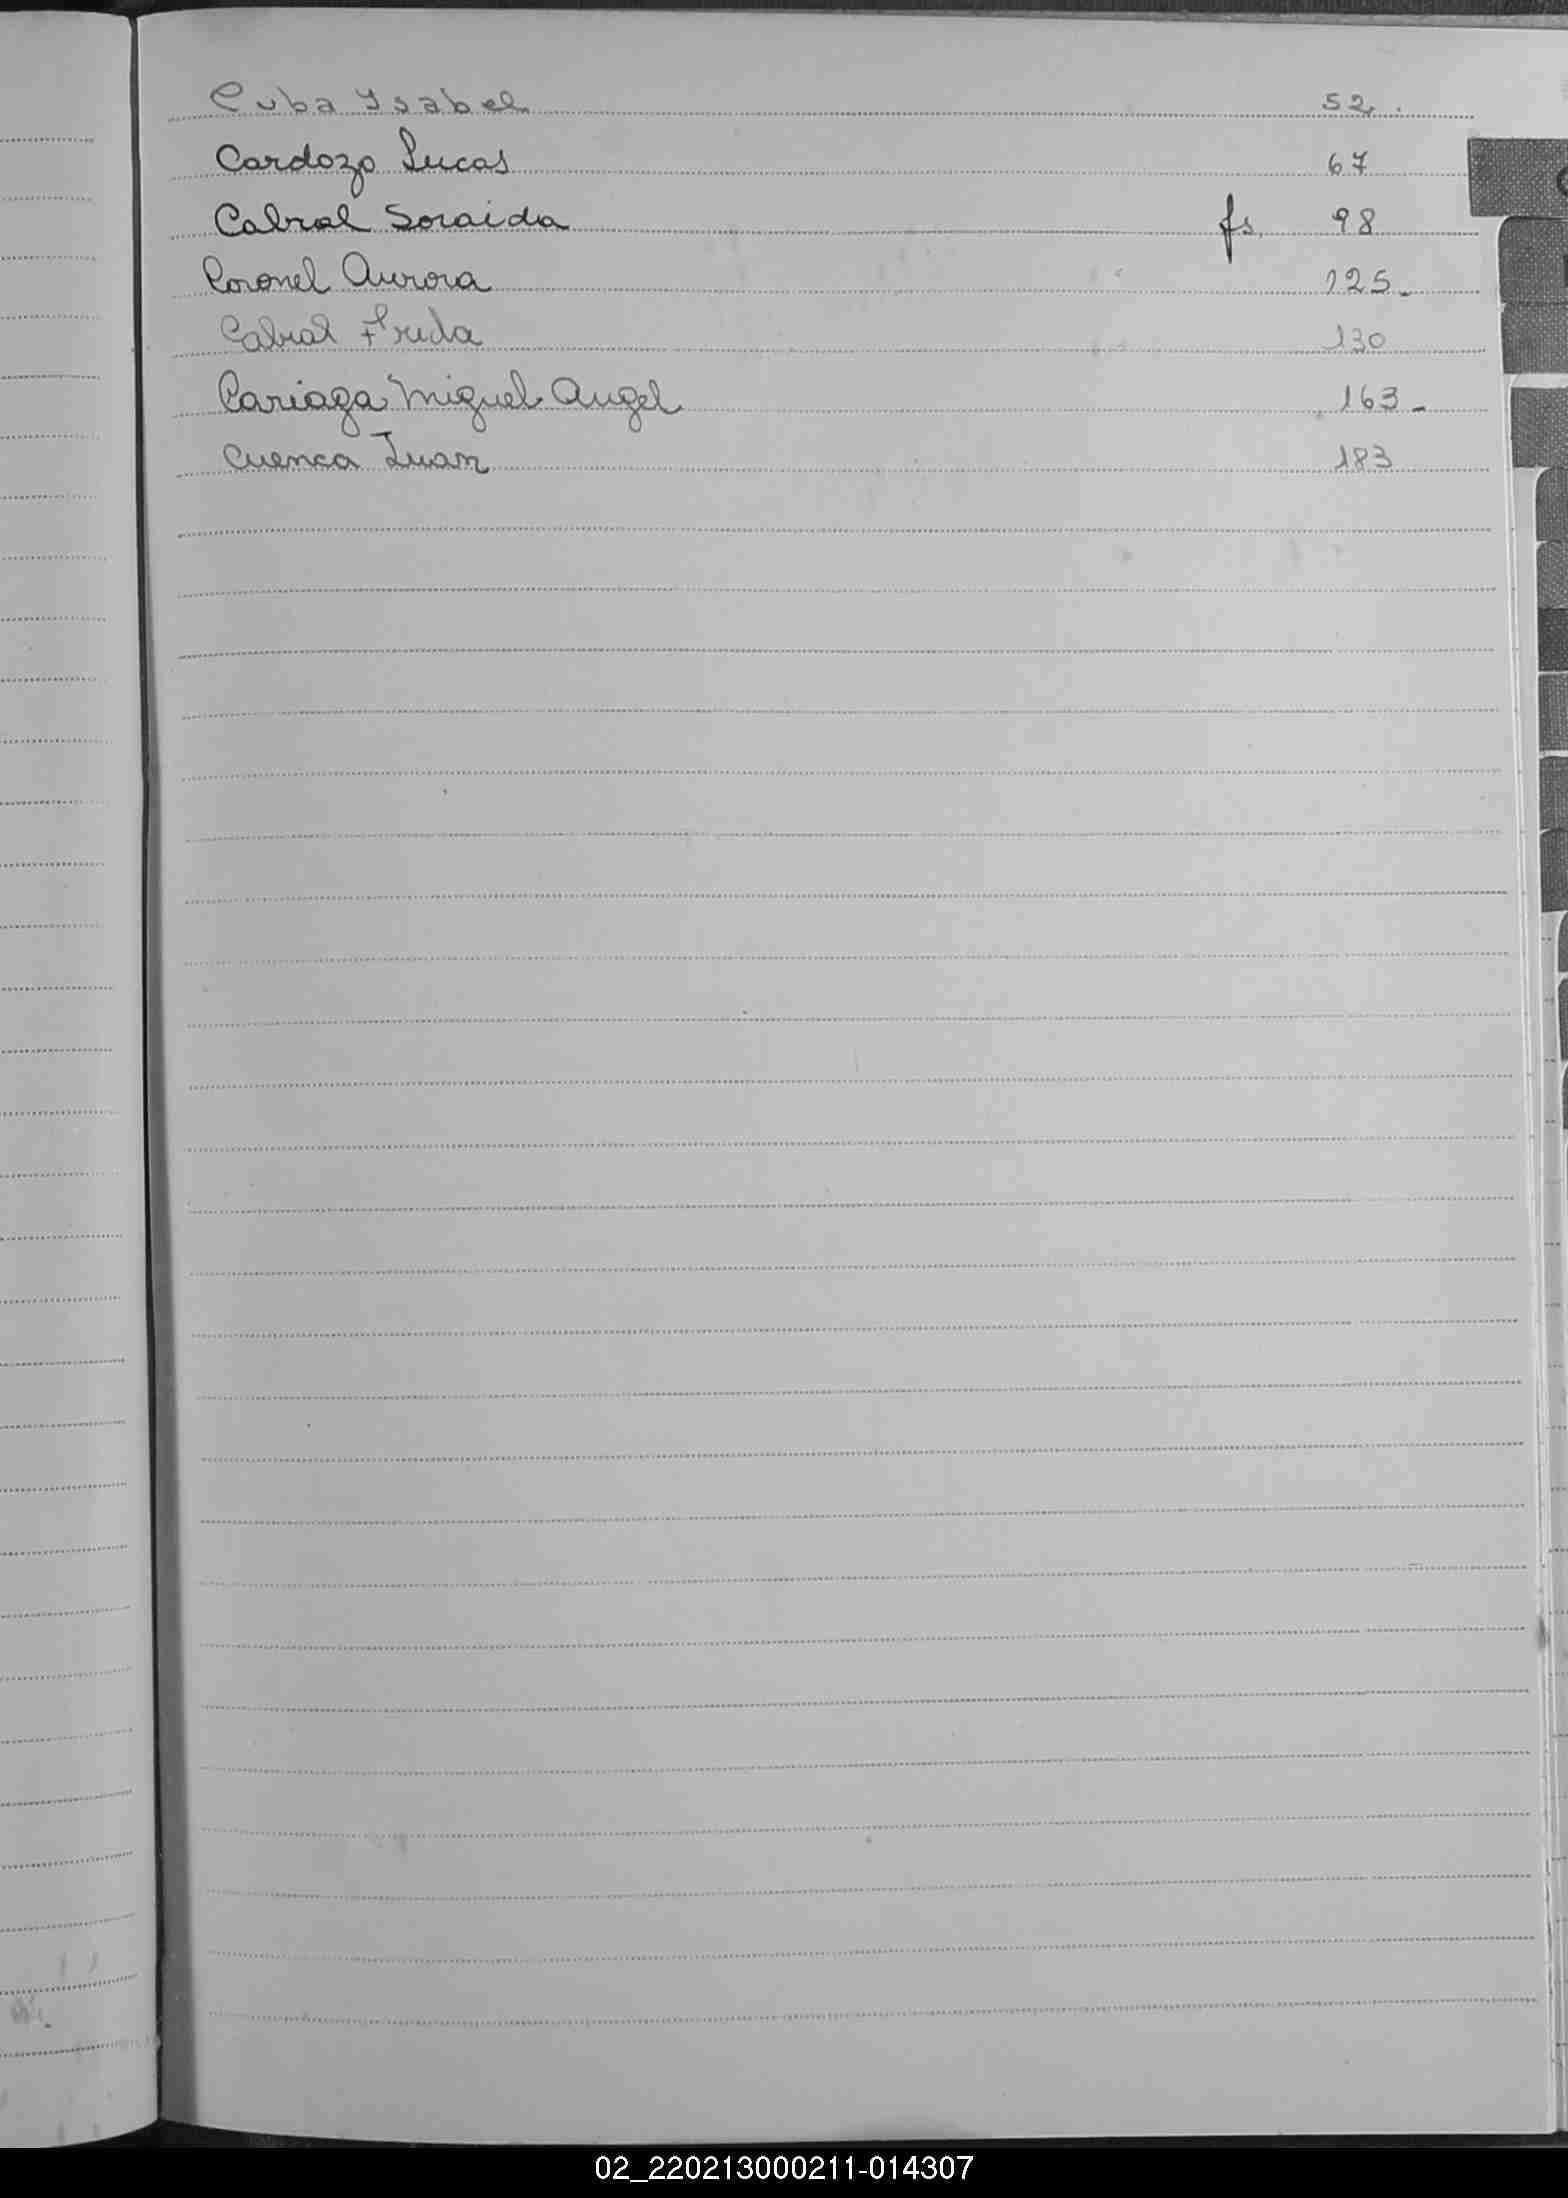 Cuba Ysabel 52.
Cardozo Lucas 67
Cabral Soraida fs. 98
Coronel Aurora 125-
Cabral Frida 130
Cariaga Miguel Angel 163-
Cuenca Juan 183
02_220213000211-014307